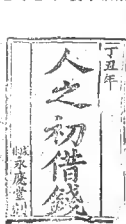 丁丑年
人之初借錢
永慶堂